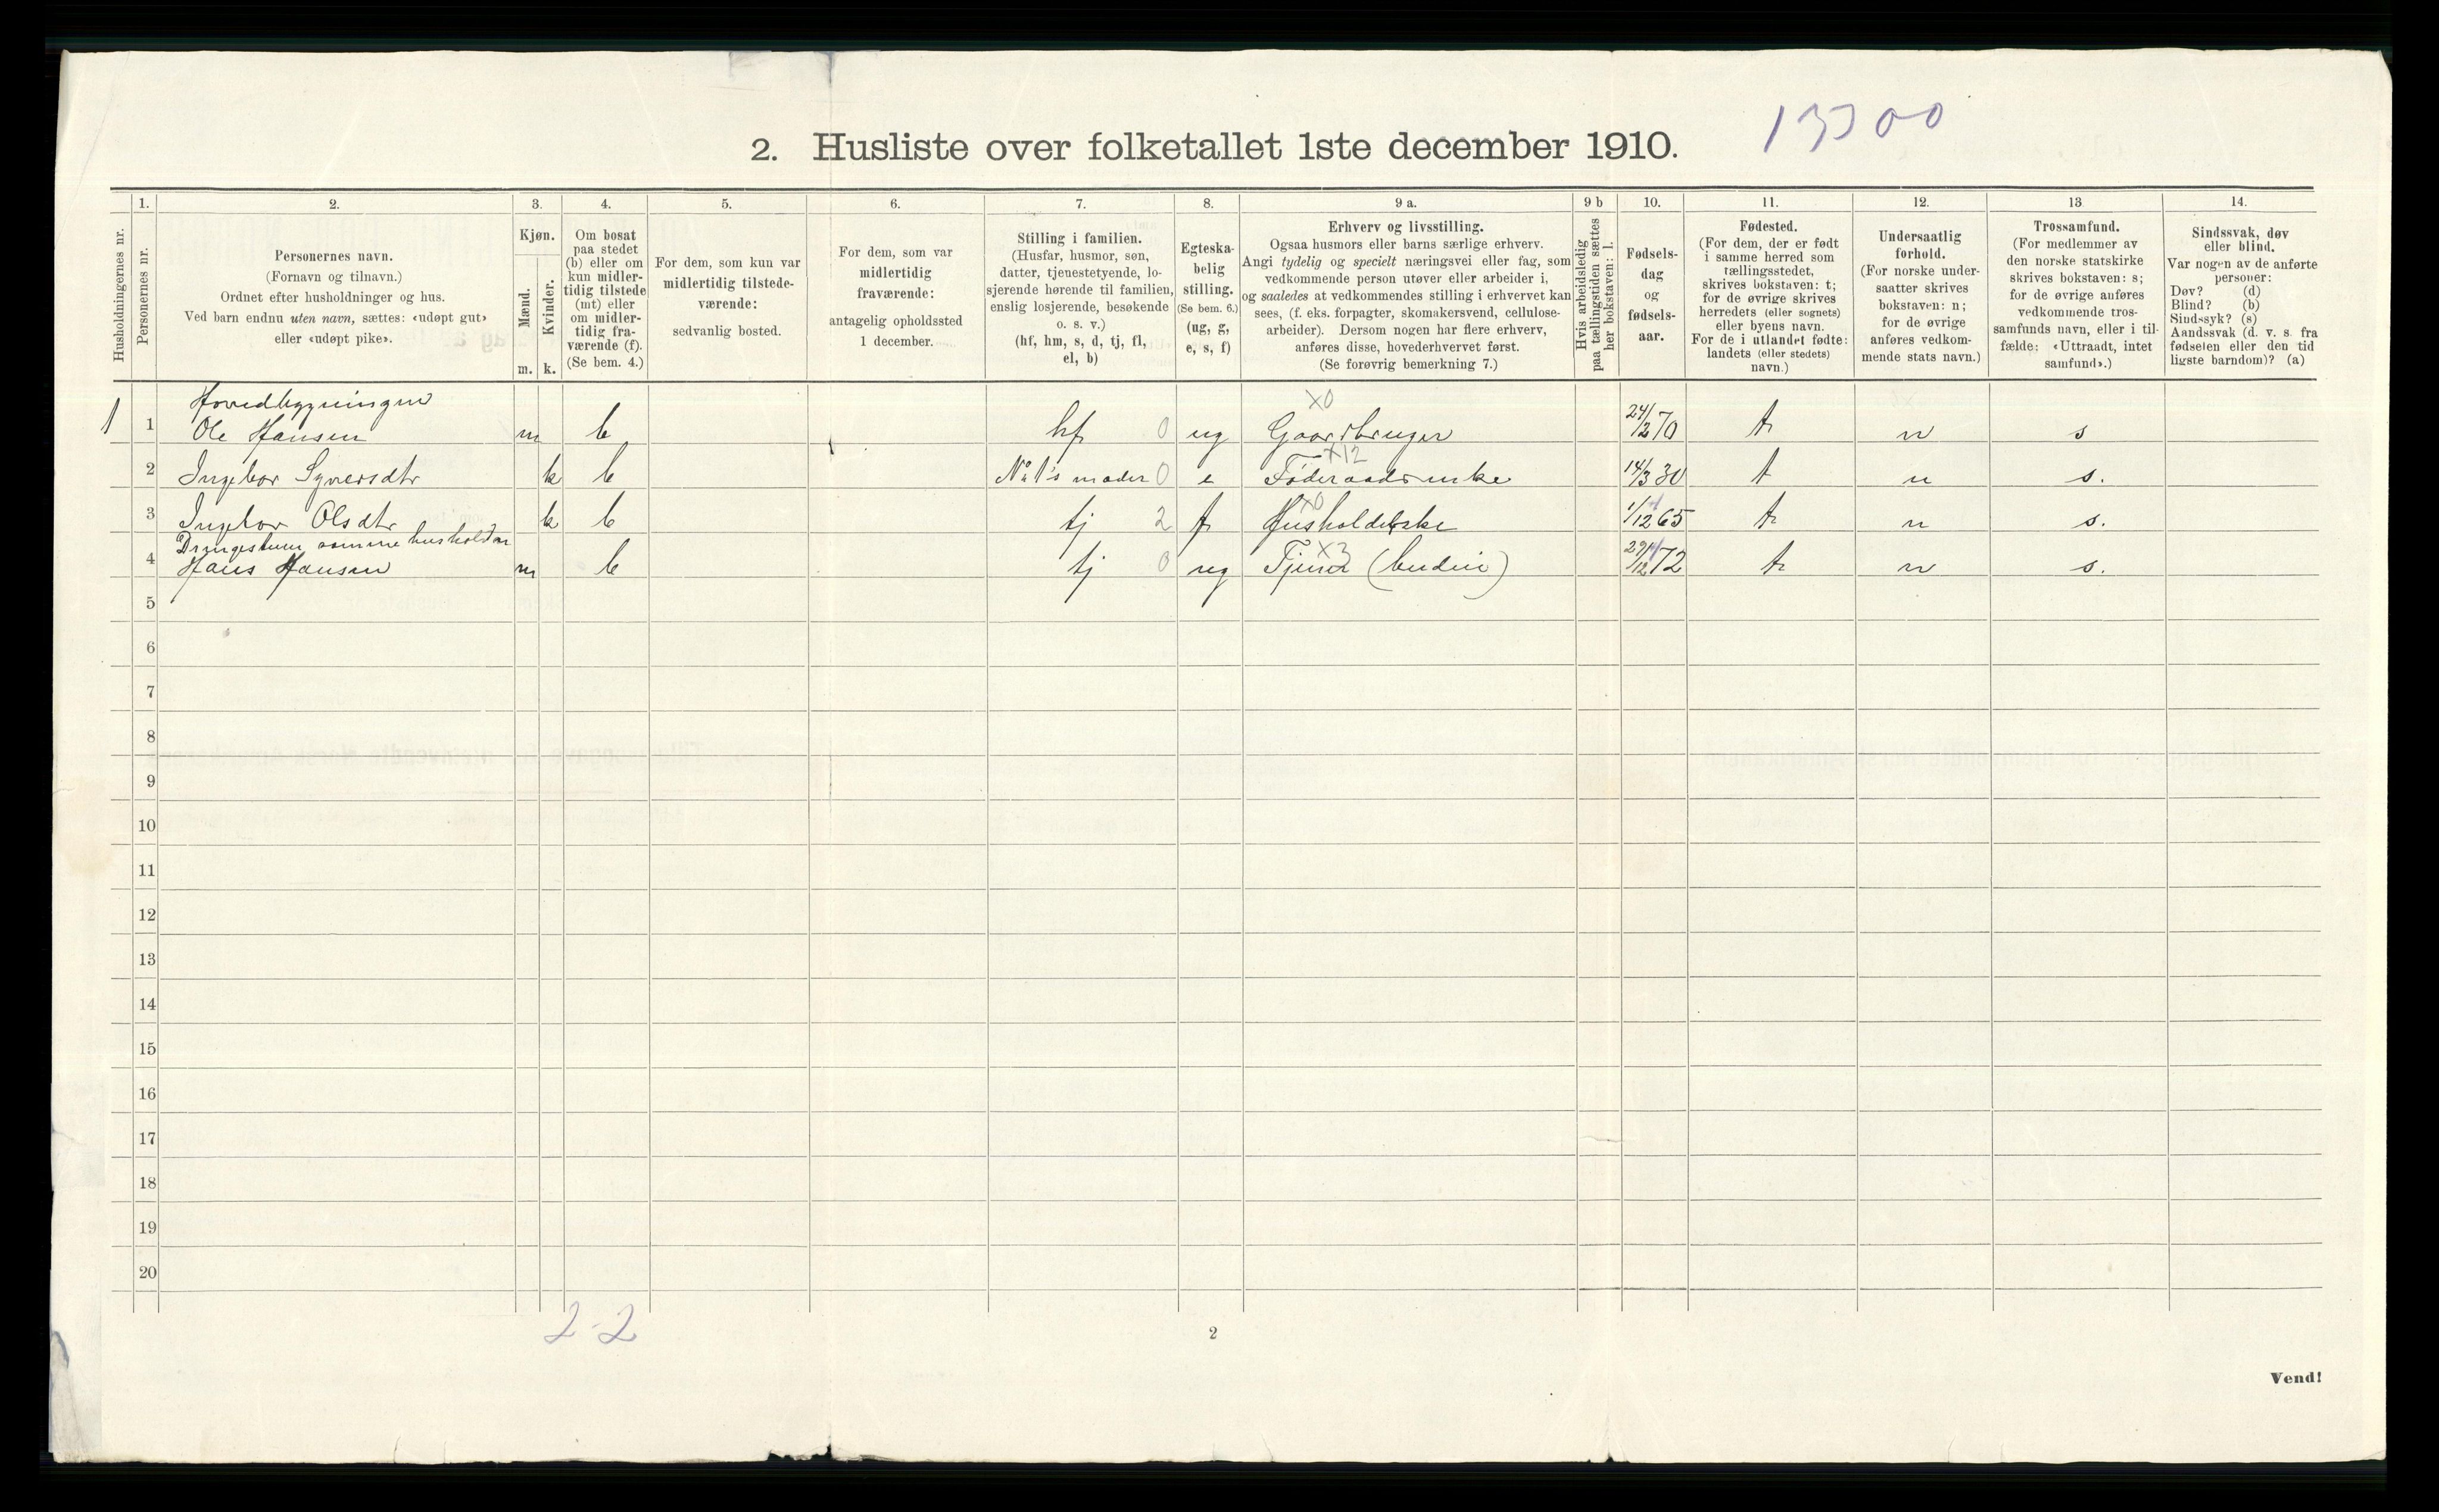 13300
2. Husliste over folketallet 1ste december 1910.
Husholdningernes nr.
1.
Personernes nr.
2.
Personernes navn.
(Fornavn og tilnavn.)
Ordnet efter husholdninger og hus.
Ved barn endnu uten navn, sættes: «udøpt gut»
eller «udøpt pike».
3.
Kjøn.
Mænd.
Kvinder.
m. k.
4.
Om bosat
paa stedet
(b) eller om
kun midler-
tidig tilstede
(mt) eller
om midler-
tidig fra-
værende (f).
(Se bem. 4.)
5.
For dem, som kun var
midlertidig tilstede-
værende:
sedvanlig bosted.
6.
For dem, som var
midlertidig
fraværende:
antagelig opholdssted
1 december.
7.
Stilling i familien.
(Husfar, husmor, søn,
datter, tjenestetyende, lo-
sjerende hørende til familien,
enslig losjerende, besøkende
o. s. v.)
(hf, hm, s, d, tj, fl,
el, b)
8.
Egteska-
belig
stilling.
(Se bem. 6.)
(ug, g,
e, s, f)
9 a.
Erhverv og livsstilling.
Ogsaa husmors eller barns særlige erhverv.
Angi tydelig og specielt næringsvei eller fag, som
vedkommende person utøver eller arbeider i,
og saaledes at vedkommendes stilling i erhvervet kan
sees, (f. eks. forpagter, skomakersvend, cellulose-
arbeider). Dersom nogen har flere erhverv,
anføres disse, hovederhvervet først.
(Se forøvrig bemerkning 7.)
9 b
Hvis arbeidsledig
paa tællingstiden sættes
her bokstaven: l.
10.
Fødsels-
dag
og
fødsels-
aar.
11.
Fødested.
(For dem, der er født
i samme herred som
tællingsstedet,
skrives bokstaven: t;
for de øvrige skrives
herredets (eller sognets)
eller byens navn.
For de i utlandet fødte:
landets (eller stedets)
navn.)
12.
Undersaatlig
forhold.
(For norske under-
saatter skrives
bokstaven: n;
for de øvrige
anføres vedkom-
mende stats navn.)
13
Trossamfund.
(For medlemmer av
den norske statskirke
skrives bokstaven: s;
for de øvrige anføres
vedkommende tros-
samfunds navn, eller i til-
fælde: «Uttraadt, intet
samfund».)
14.
Sindssvak, døv
eller blind.
Var nogen av de anførte
personer:
Døv? (d)
Blind? (b)
Sindssyk? (s)
Aandssvak (d. v. s. fra
fødselen eller den tid
ligste barndom)? (a)
Hovedbygningen
X0
1 1 Ole Hansen m b hf 0 ug Gaardbruger 24/2 70 t n s
X12
2 Ingebor Syversdtr k b No 1's moder 0 e Føderaadsenke 14/3 30 t n s.
X0
3 Ingebor Olsdtr k b tj 2 f Husholderske 1/12 65 t n s.
samme husholdn
X3
4 Hans Hansen m b tj 0 ug Tjener 29/12 72 t n s.
5
6
7
8
9
10
11
12
13
14
15
16
17
18
19
20
2-2
2
Vend!